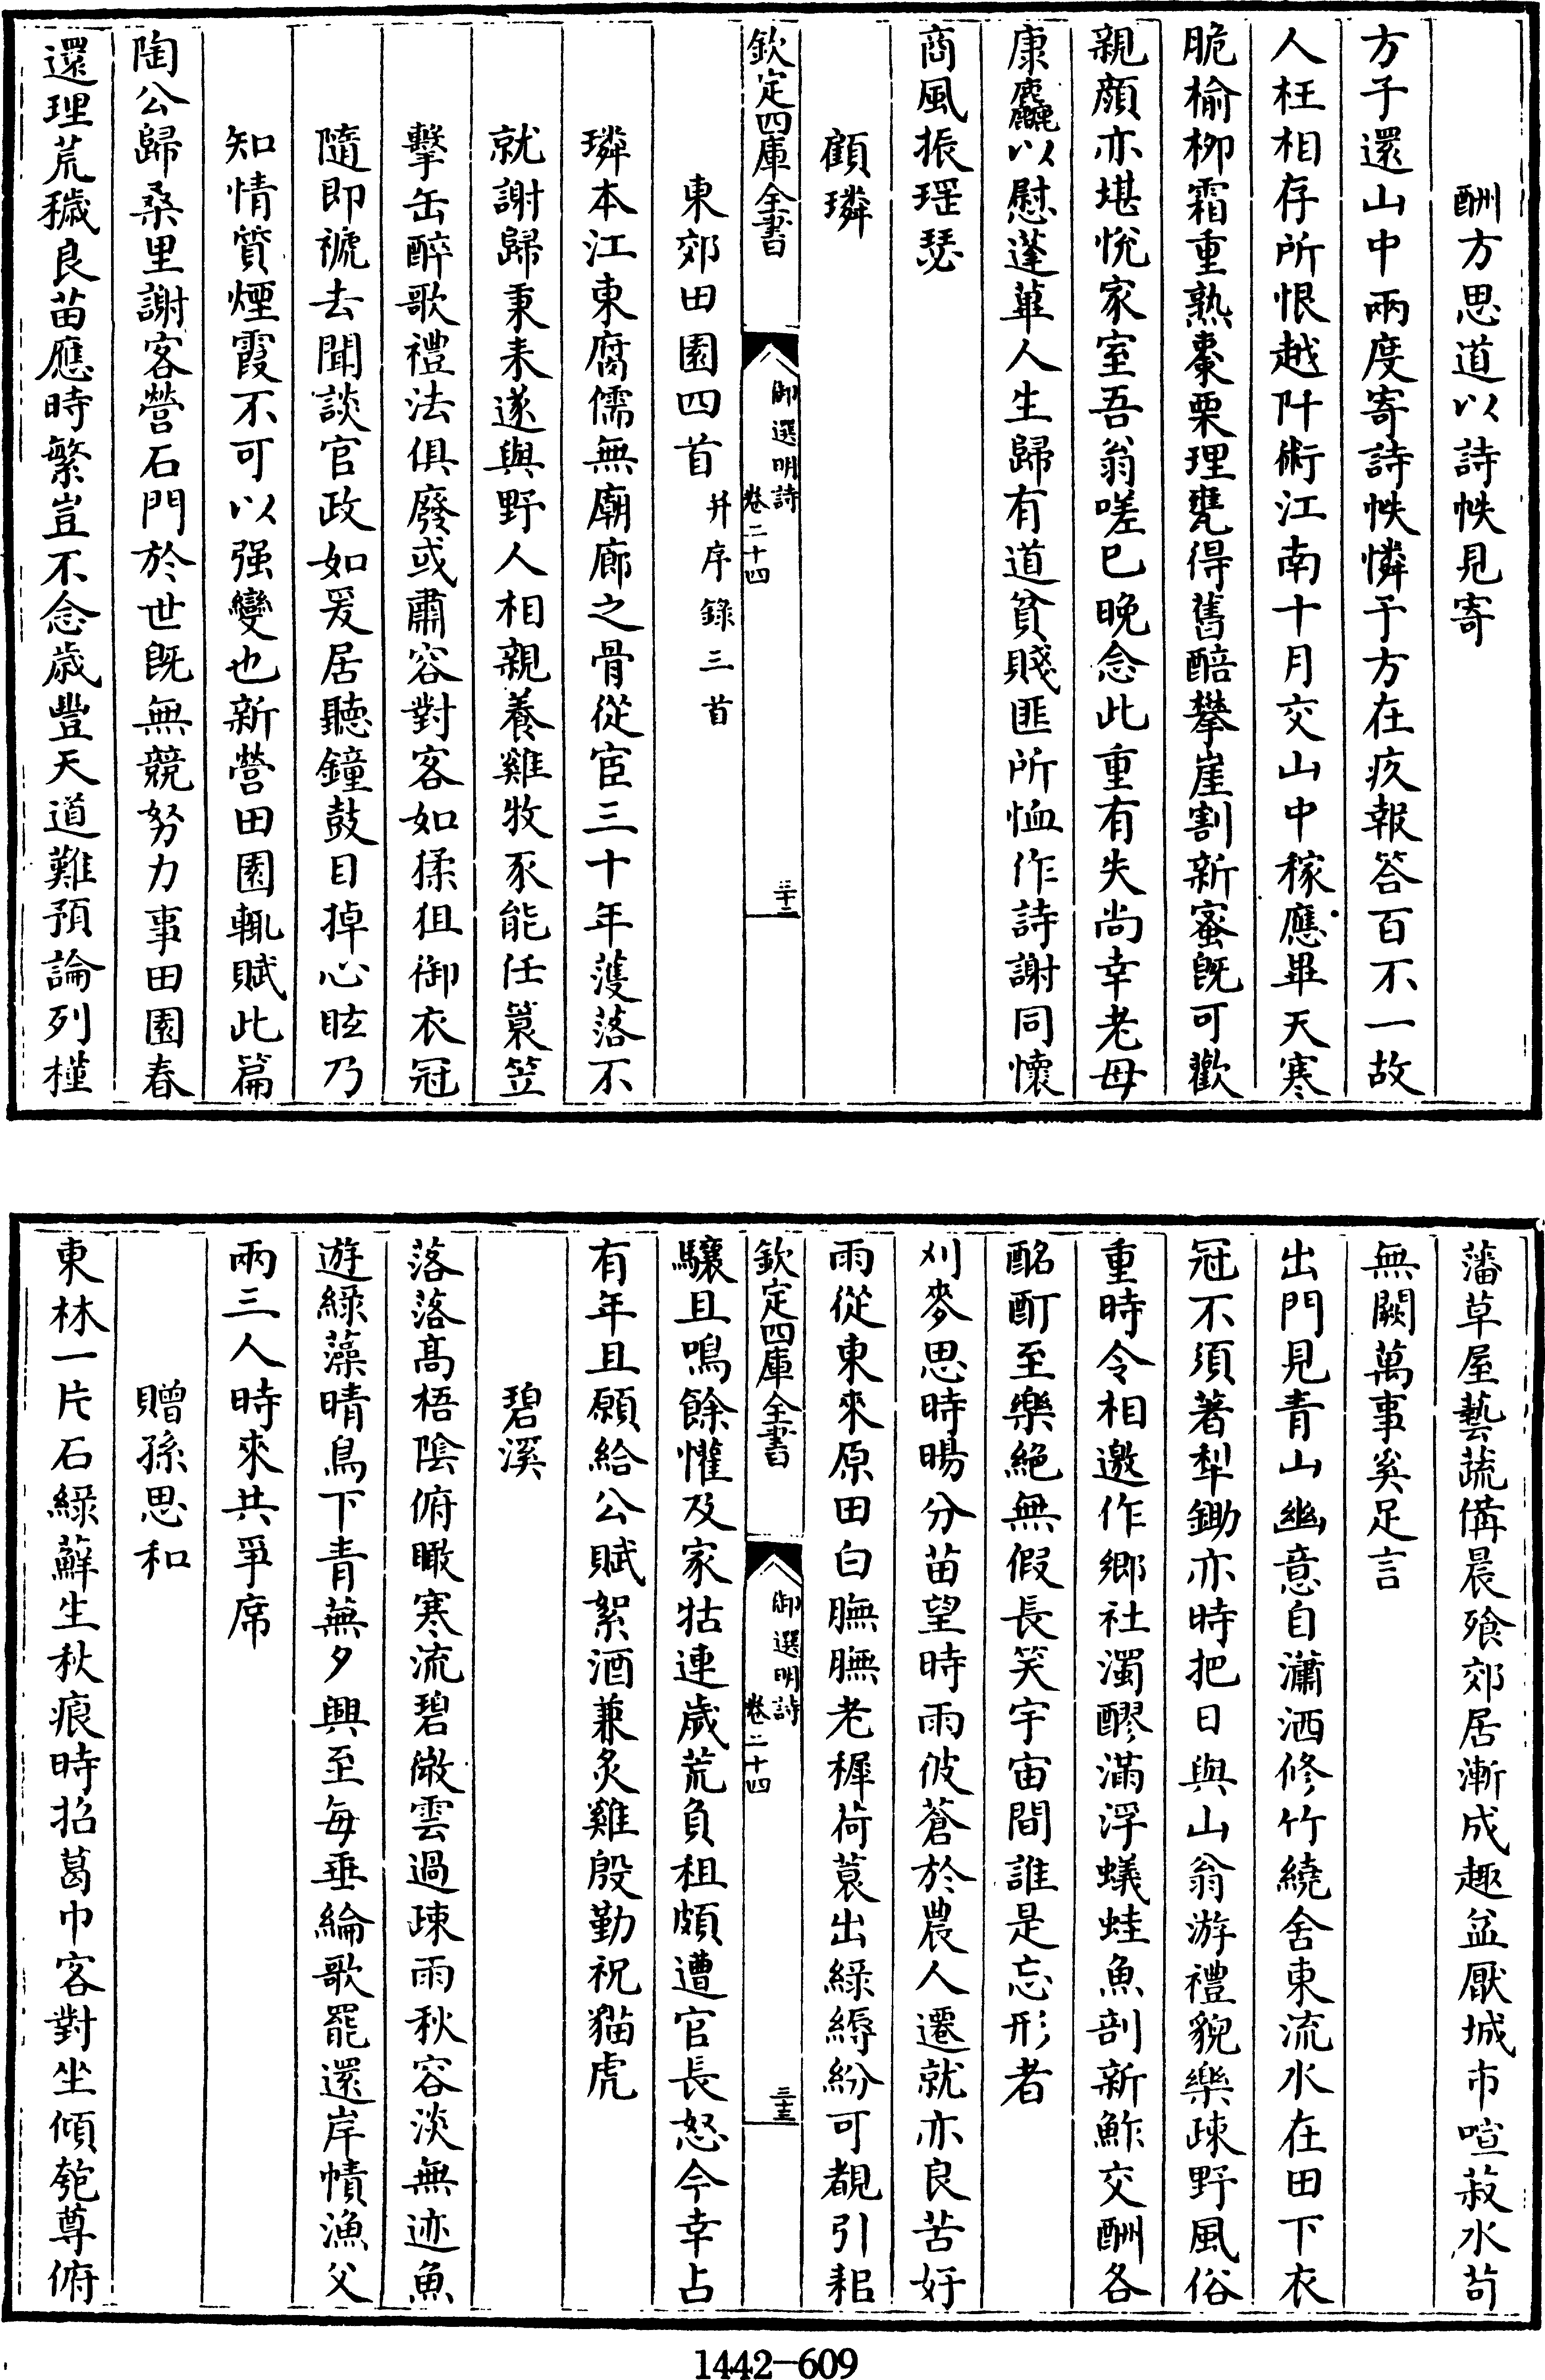 酬方思道以詩帙見寄
方子還山中兩度寄詩帙憐予方在疚報答百不一故
人枉相存所恨越阡術江南十月交山中稼應畢天寒
脆榆柳霜重熟棗栗理甕得舊醅攀崖割新蜜既可歡
親顔亦堪悅家室吾翁嗟已晚念此重有失尚幸老母
康麤以慰蓬蓽人生歸有道貧賤匪所恤作詩謝同懷
商風振瑶瑟
顧璘
欽定四庫全書
御選明詩
卷二十四
三十二
東郊田園四首并序錄三首
璘本江東腐儒無廟廊之骨從宦三十年濩落不
就謝歸秉耒遂與野人相親養雞牧豕能任簑笠
擊缶醉歌禮法俱廢或肅容對客如猱狙御衣冠
隨即褫去聞談官政如爰居聽鐘鼓目掉心眩乃
知情質煙霞不可以强變也新營田園輒賦此篇
陶公歸桑里謝客營石門於世既無競努力事田園春
還理荒穢良苗應時繁豈不念歲豐天道難預論列槿
藩草屋藝蔬備晨飱郊居漸成趣益厭城市喧菽水苟
無闕萬事奚足言
出門見青山幽意自瀟洒修竹繞舍東流水在田下衣
冠不須著犁鋤亦時把日與山翁游禮貌樂疎野風俗
重時令相邀作鄉社濁醪滿浮蟻蛙魚剖新鮓交酬各
酩酊至樂絕無假長笑宇宙間誰是忘形者
刈麥思時暘分苗望時雨彼蒼於農人遷就亦良苦好
雨從東來原田白膴膴老穉荷蓑出綠縟紛可覩引耜
欽定四庫全書
御選明詩
卷二十四
三十三
驤且鳴餘懽及家牯連歲荒負租頗遭官長怒今幸占
有年且願給公賦絮酒兼炙雞殷勤祝貓虎
碧溪
落落高梧陰俯瞰寒流碧澂雲過疎雨秋容淡無迹魚
遊綠藻晴鳥下青蕪夕興至每垂綸歌罷還岸幘漁父
兩三人時來共爭席
贈孫思和
東林一片石綠蘚生秋痕時招葛巾客對坐傾匏尊俯
1442-609